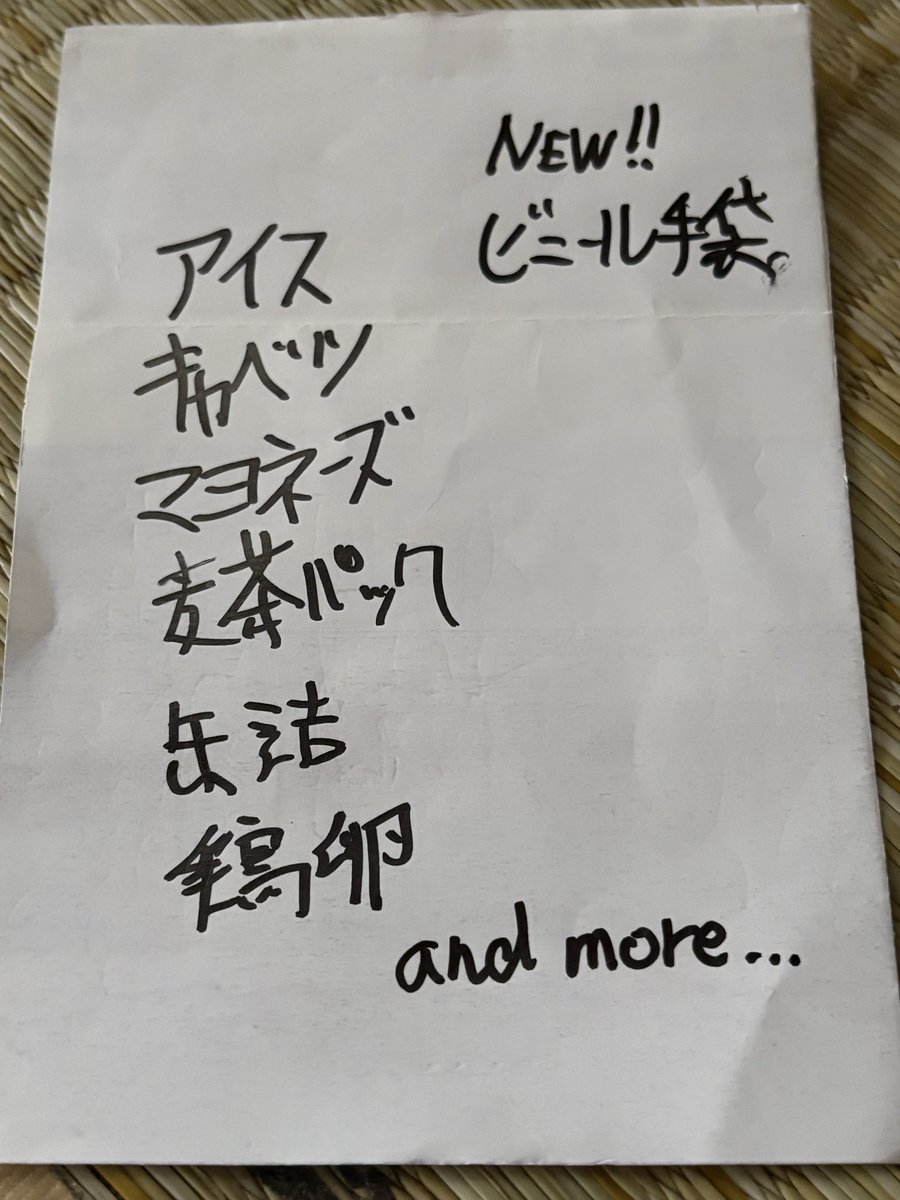 NEW!!
ビニール手袋。
アイス
キャベツ
マヨネーズ
麦茶パック
缶詰
鶏卵
and more...